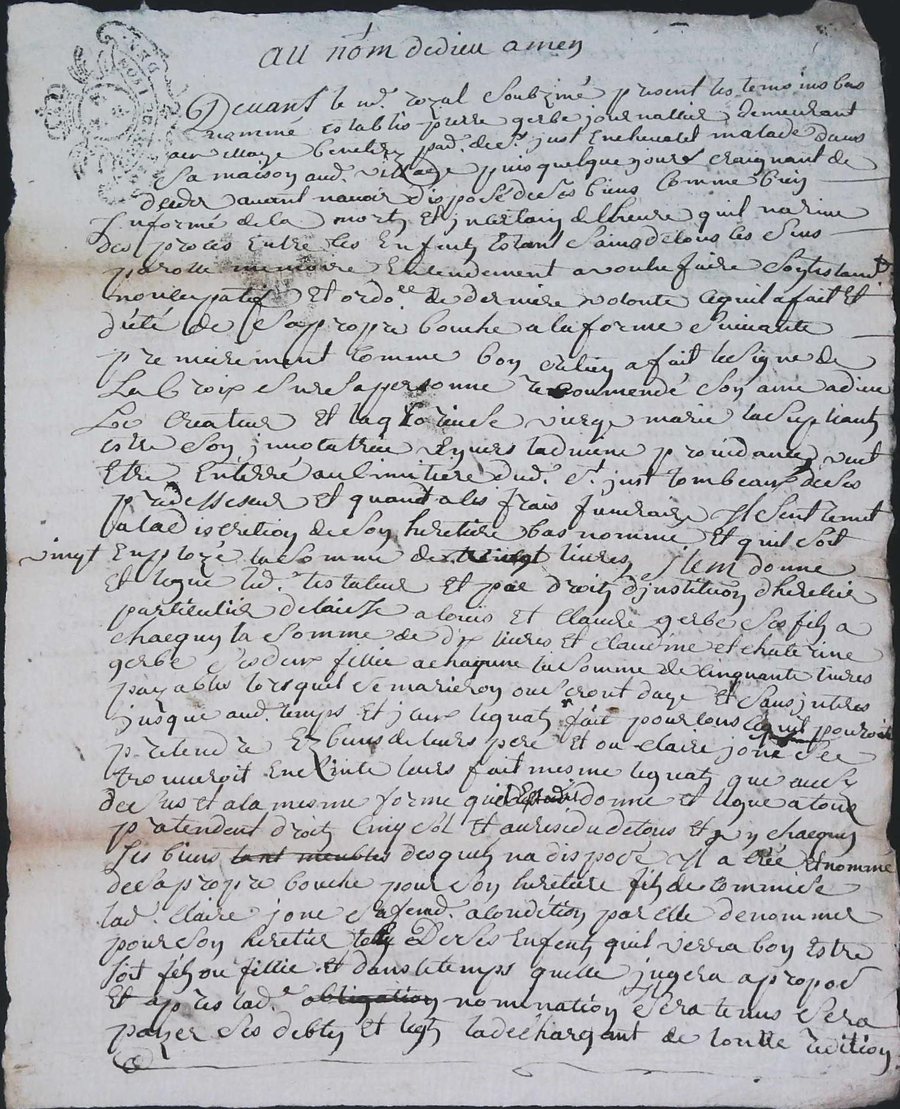 au nom de dieu amen
Devant le no.re royal soubzsiné present les temoins bas
nommé estably pierre gerbe journallier demeurant
au village beneters pad. de St. just en chevalet malade dans
sa maison aud. village puis quelque jours craignant de
deceder avant navoir disposé de ses biens comme bien
Informé de la mort et incertain de lheure quil narive
des proces entre les Enfents Estant sains de tous les sens
parolle memoire Entendement a voulu faire son testamt
noncupatif et ordo.ce de derniere volonte lequil a fait et
dicté de sa propre bouche a la forme suivante
premierement comme bon cretien a fait le signe de
La Croix sur sa personne recommendé son ame a dieu
Le Createur et la glorieuse vierge marie la supliant
estre son invocatrice Envers la divine providance veut
Etre Enterré au cimitiere dud. St. just tombeaux de ses
predesseseur et quant a les frais funeraire Il sent remit
a la discretion de son heretiere bas nommé et quil soit
vingt Employe la somme de livres, Item donne
et legue led. testateur et par droit dinstitution dheretier
particulier delaisse a louis et claude gerbe ses fils a
chacquun la somme de dix livres et claudine et chaterine
gerbe ses deux fillie a chaqune la somme de cinquante livres
payables lors quil se marieron ou seront dage et sans interes
jusque aud. temps et iceux legats fait pour tous ce quil pouroit
pretendre Ez biens de leurs pere et ou claire jone see
trouveroit Enceinte leurs fait mesme legats que au se
dessus et a la mesme forme que donne et legue a tous
pratendent droits cinq sol et au residu de tous et un chacquun
ses biens tant meubles desquels na disposé Il a créé et nomme
de sa propre bouche pour son heretiere fideicommise
lad. claire jone sa fem. a condition par elle de nommer
pour son heretier telle De ses Enfents quil verra bon estre
soit fils ou fillie et dans le temps quelle jugera a propos
Et apres lad. obligation nomination sera tenus sera
payer ses debtes et legs la dechargant de toutte redition